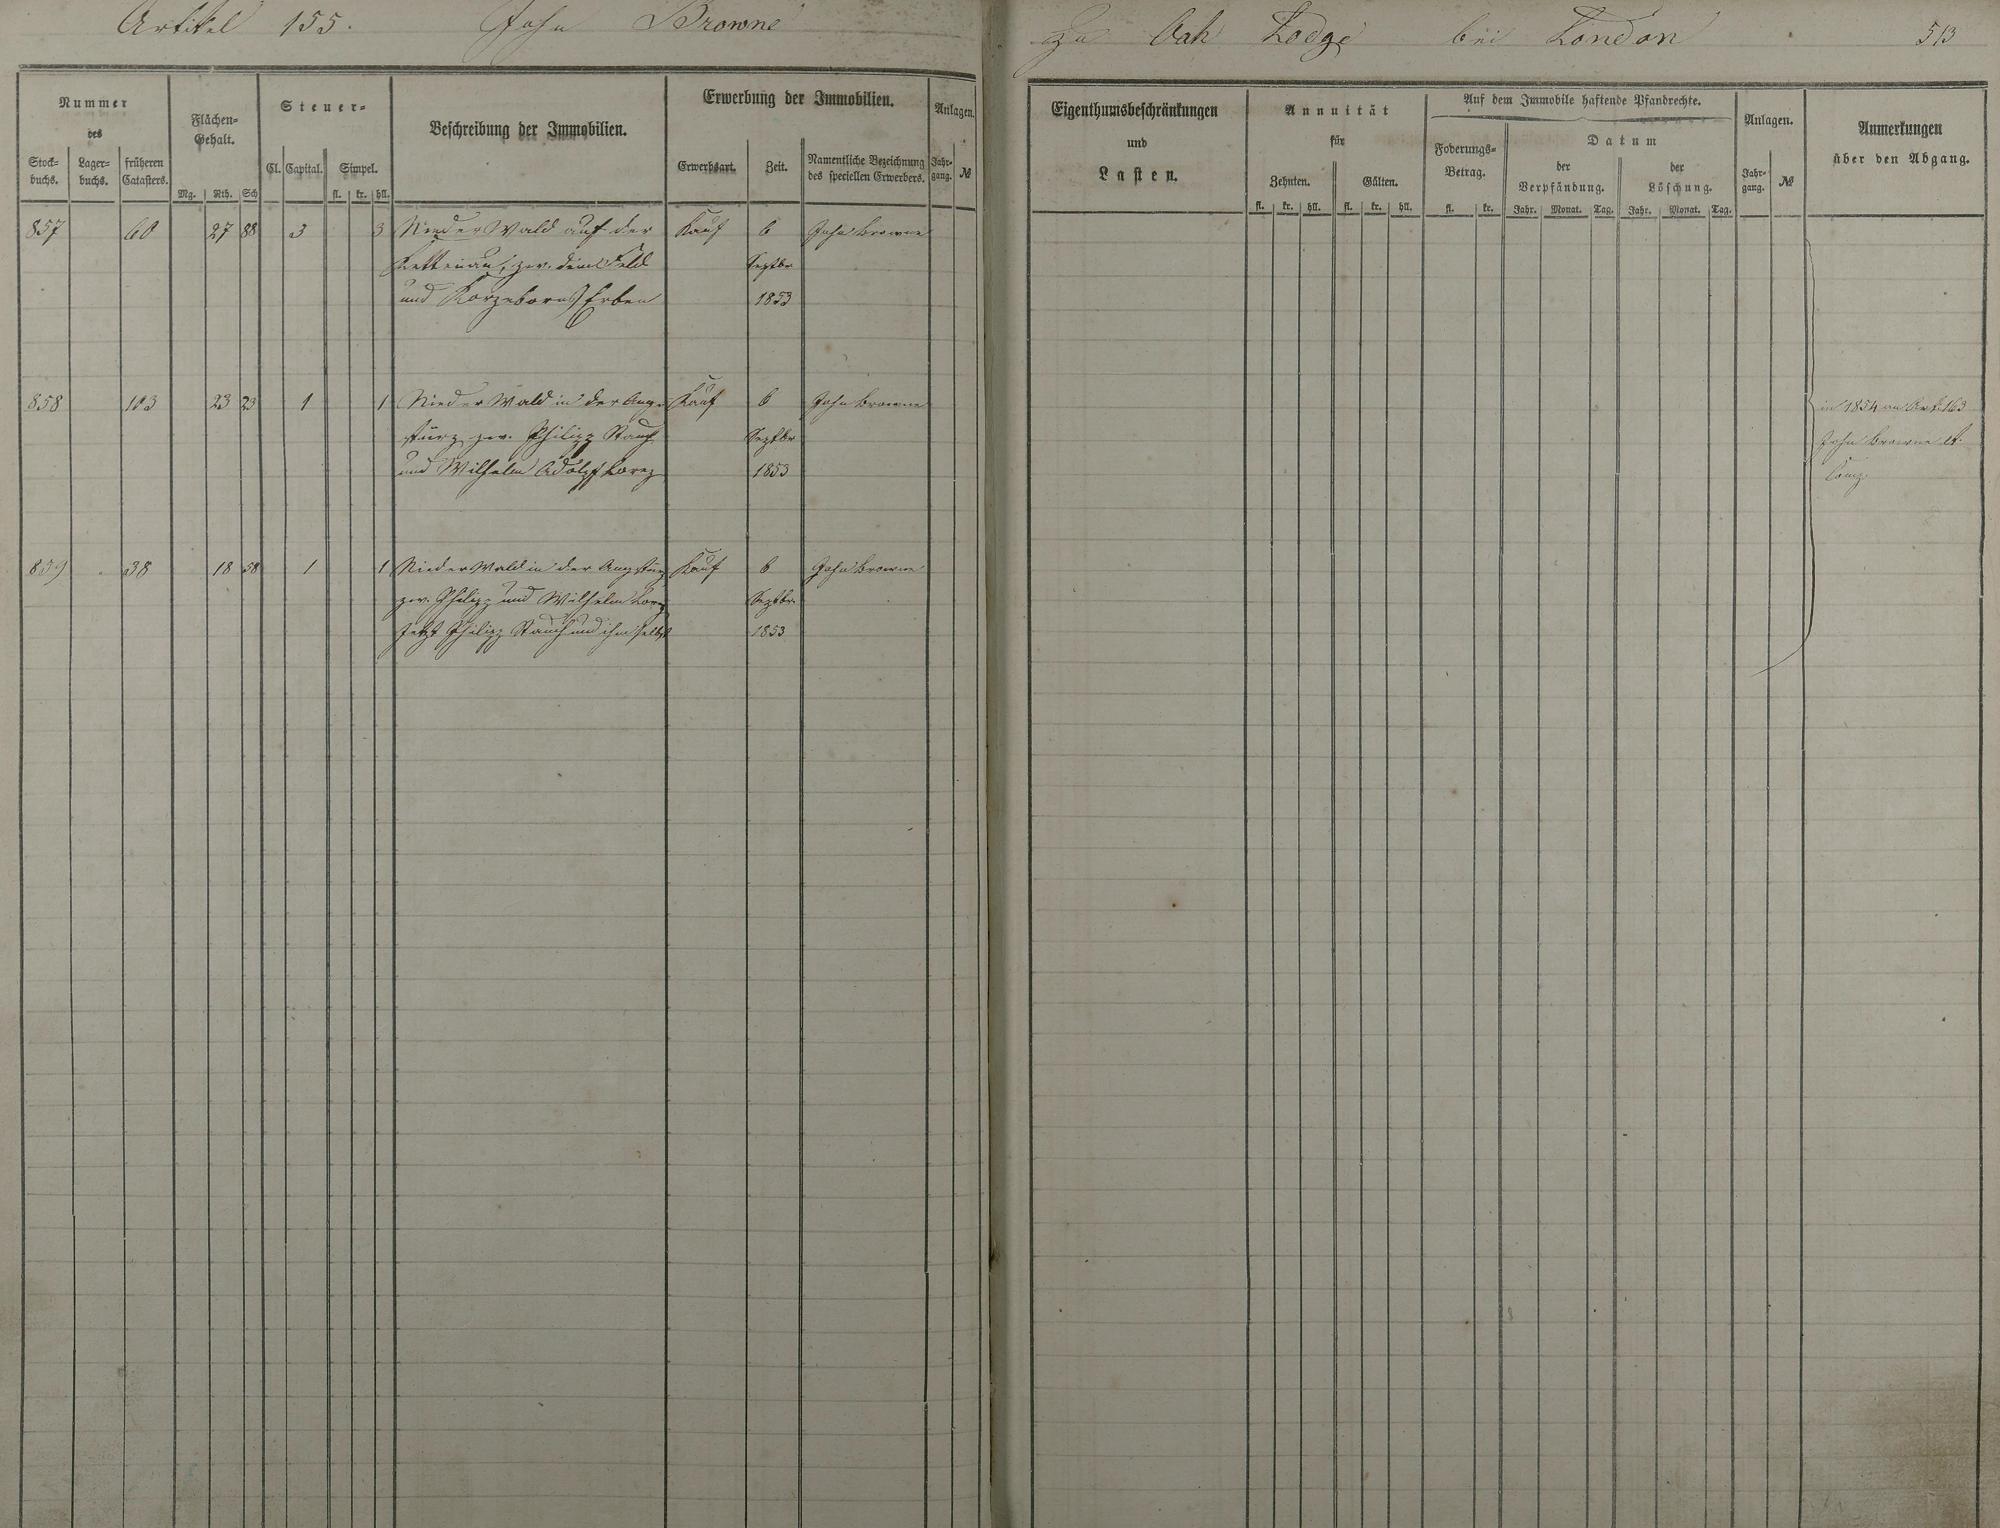 Artikel 155. John Browne zu Oak Lodge bei London 513
Nummer
des
Stock-
buchs.
Lager-
buchs.
früheren
Catasters.
Flächen-
Gehalt.
Mg. Rth. Sch
Steuer-
Cl. Capital. Simpel.
fl. kr. hll.
Beschreibung der Immobilien.
Erwerbung der Immobilien.
Erwerbsart. Zeit.
Namentliche Bezeichnung
des speciellen Erwerbers.
Anlagen.
Jahr-
gang. №
Eigenthumsbeschränkungen
und
Lasten.
Annuität
für
Zehnten. Gülten.
fl. kr. hll. fl. kr. hll.
Auf dem Immobile haftende Pfandrechte.
Foderungs-
Betrag.
fl. kr.
Datum
der
Verpfändung.
der
Löschung.
Jahr. Monat. Tag. Jahr. Monat. Tag.
Anlagen.
Jahr-
gang. №
Anmerkungen
über den Abgang.
857 60 27 88 3 3 Nieder Wald auf der Kauf 6 John Browne
zw. dem Feld Septbr
und Erben 1853
858 103 23 23 1 1 Nieder Wald in der Kauf 6 John Browne
zw. Philipp Stauf Septbr
und Wilhelm Adolph Lorez 1853
859 38 18 58 1 1 Nieder Wald in der Kauf 6 John Browne
zw. Philipp und Wilhelm Septbr.
jetzt Philipp Stauf und ihm selbst 1853
in 1854 an Art. 163
John Browne et
Comp.